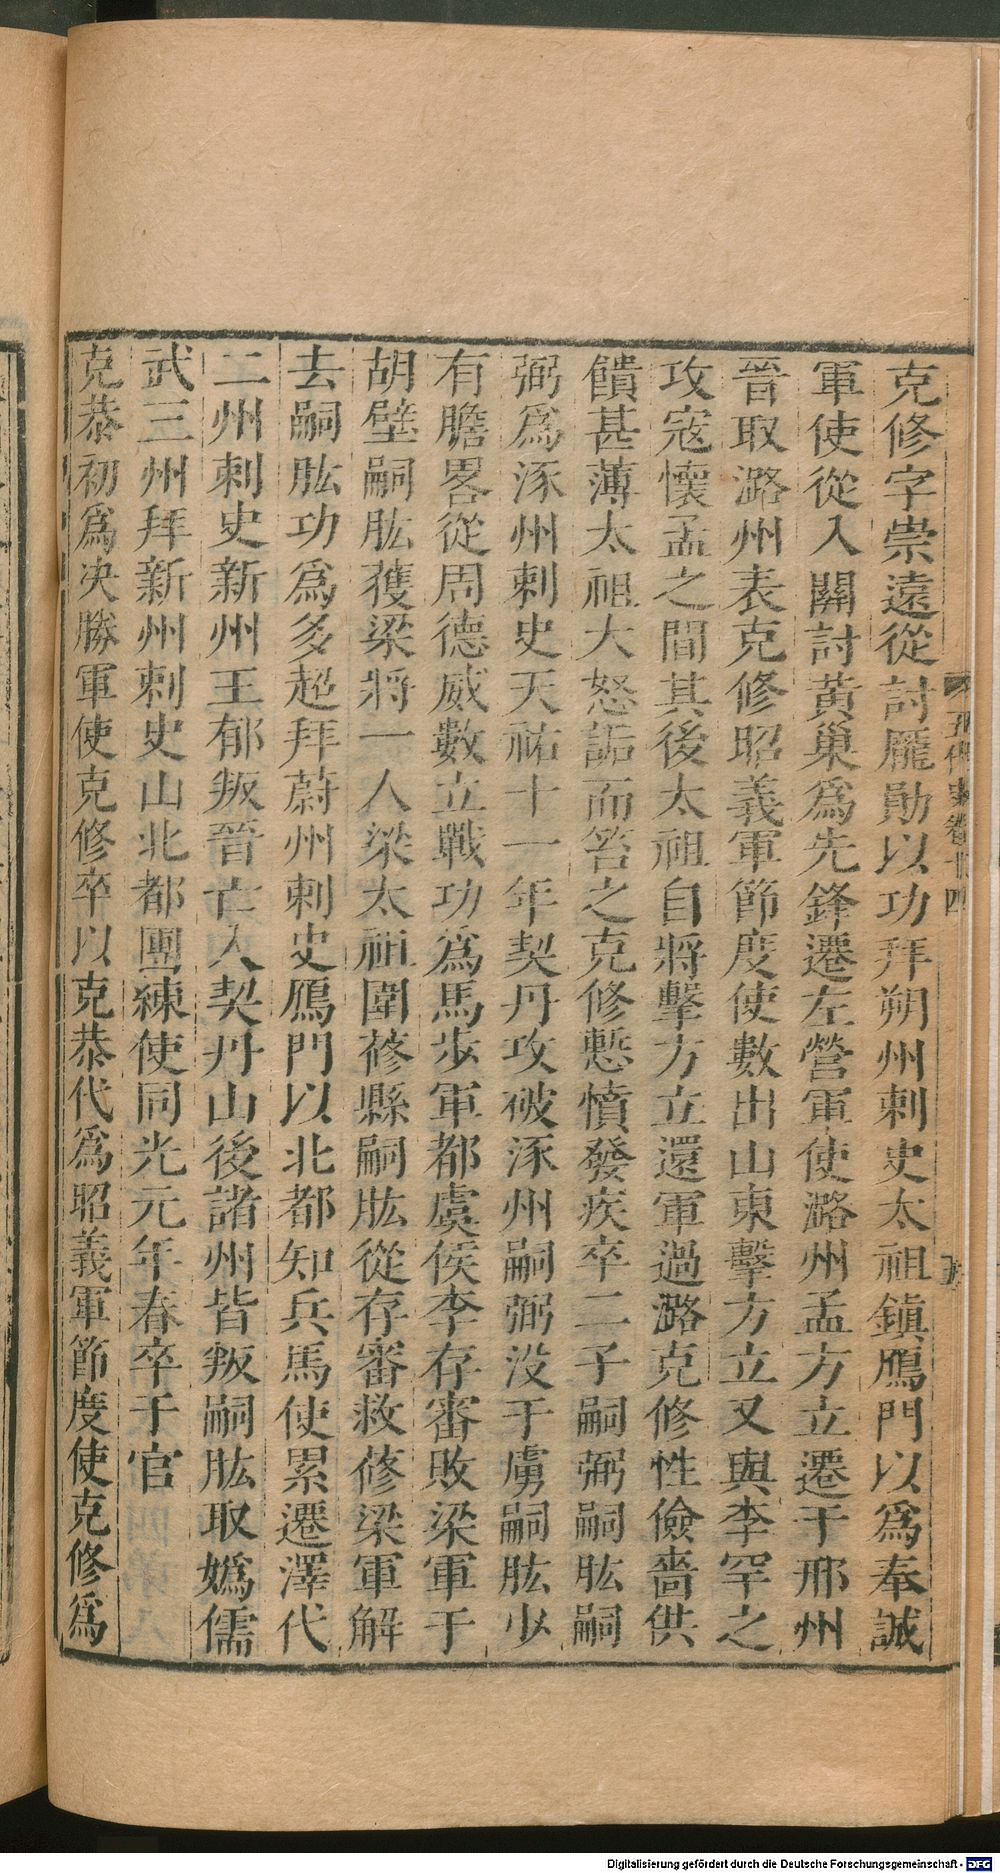 克修字崇遠從討龐勛以功拜朔州刺史太祖鎮鴈門以爲奉誠
軍使從入關討黃巢爲先鋒遷左營軍使潞州孟方立遷于邢州
晉取潞州表克修昭義軍節度使數出山東擊方立又與李罕之
攻寇懷孟之間其後太祖自將擊方立還軍過潞克修性儉嗇供
饋甚薄太祖大怒詬而笞之克修慙憤發疾卒二子嗣弼嗣肱嗣
弼爲涿州刺史天祐十一年契丹攻破涿州嗣弼没于虜嗣肱少
有膽畧從周德威數立戰功爲馬步軍都虞候李存審敗梁軍于
胡壁嗣肱獲梁將一人梁太祖圍蓚縣嗣肱從存審救蓚梁軍解
去嗣肱功爲多超拜蔚州刺史鴈門以北都知兵馬使累遷澤代
二州刺史新州王郁叛晉亡入契丹山後諸州皆叛嗣肱取嬀儒
武三州拜新州刺史山北都團練使同光元年春卒于官
克恭初爲决勝軍使克修卒以克恭代爲昭義軍節度使克修爲
五代史卷十四
五
Digitalisierung gefördert durch die Deutsche Forschungsgemeinschaft - DFG